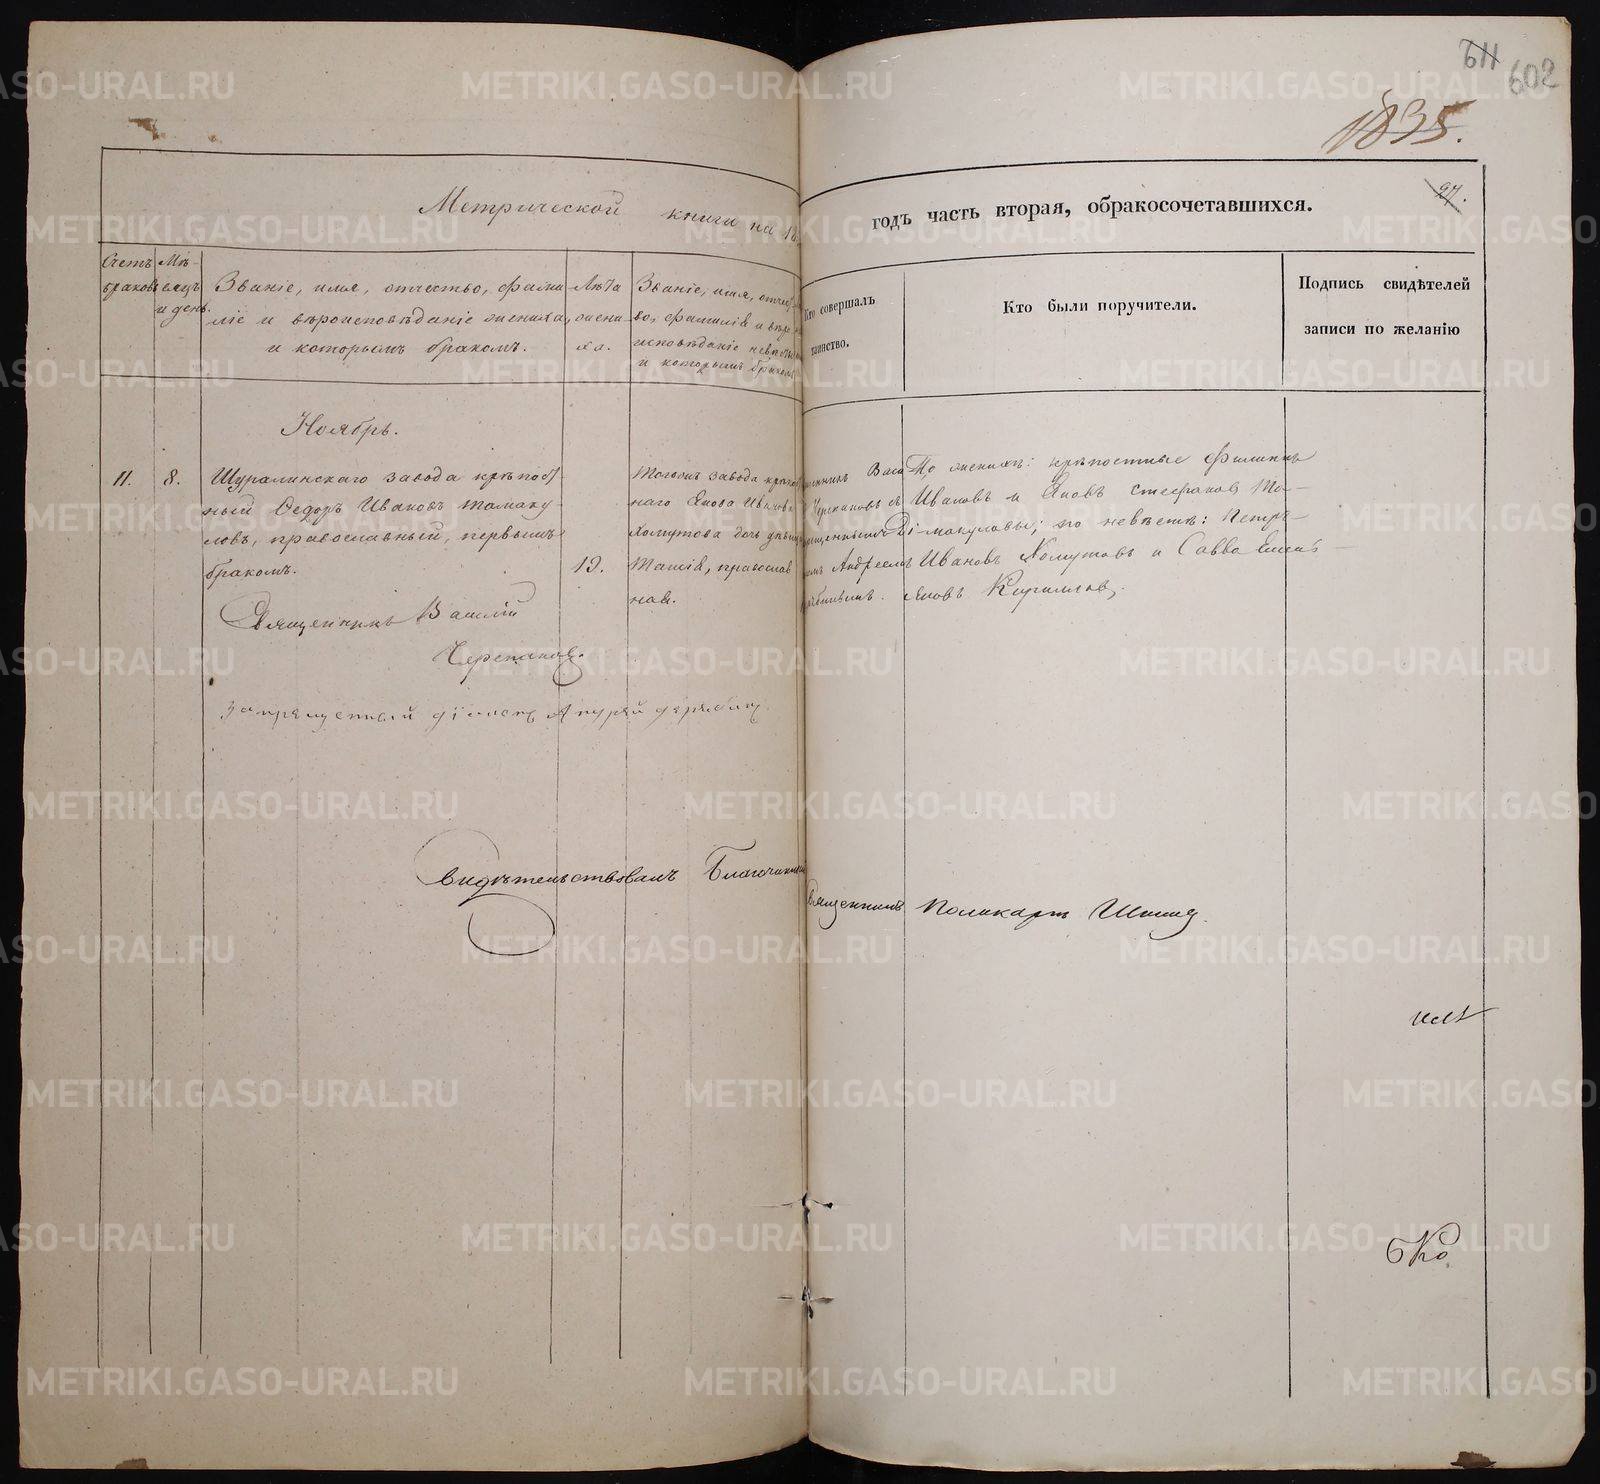 611 602
1835.
Метрической книги на 18
годъ часть вторая, обракосочетавшихся.
97.
Счетъ браковъ
Мѣсяцъ и день.
Званіе, имя, отчество, фами
ліе и вѣроисповѣданіе жениха,
и которымъ бракомъ.
Лѣта
жени-
ха.
Званіе, имя, отчест
во, фамилія и вѣро
исповѣданіе невѣсты
и которымъ бракомъ
Кто совершалъ
таинство.
Кто были поручители.
Подпись свидѣтелей
записи по желанію
Ноябрь.
11. 8.
Шуралинскаго завода крѣпост
ный Ѳедоръ Ивановъ Томаку-
ловъ, православный, первымъ
бракомъ.
19.
Тогожъ завода крѣпост
наго Якова Иванова
Хомутова дочь дѣвица
Таисія, православ
ная.
Священникъ Васи
Черепановъ съ
запрещеннымъ Ді-
омъ Андреемъ
Дерябинымъ.
По женихѣ: крѣпостные Филиппъ
Ивановъ и Яковъ Стефановъ То-
макуловы; по невѣстѣ: Петръ
Ивановъ Хомутовъ и Савва Емель-
яновъ Кирилловъ.
Священникъ Василій
Черепановъ.
Запрещенный діаконъ Андрей Дерябинъ.
Свидѣтельствовалъ Благочинный
Священникъ Поликарпъ
METRIKI.GASO-URAL.RU